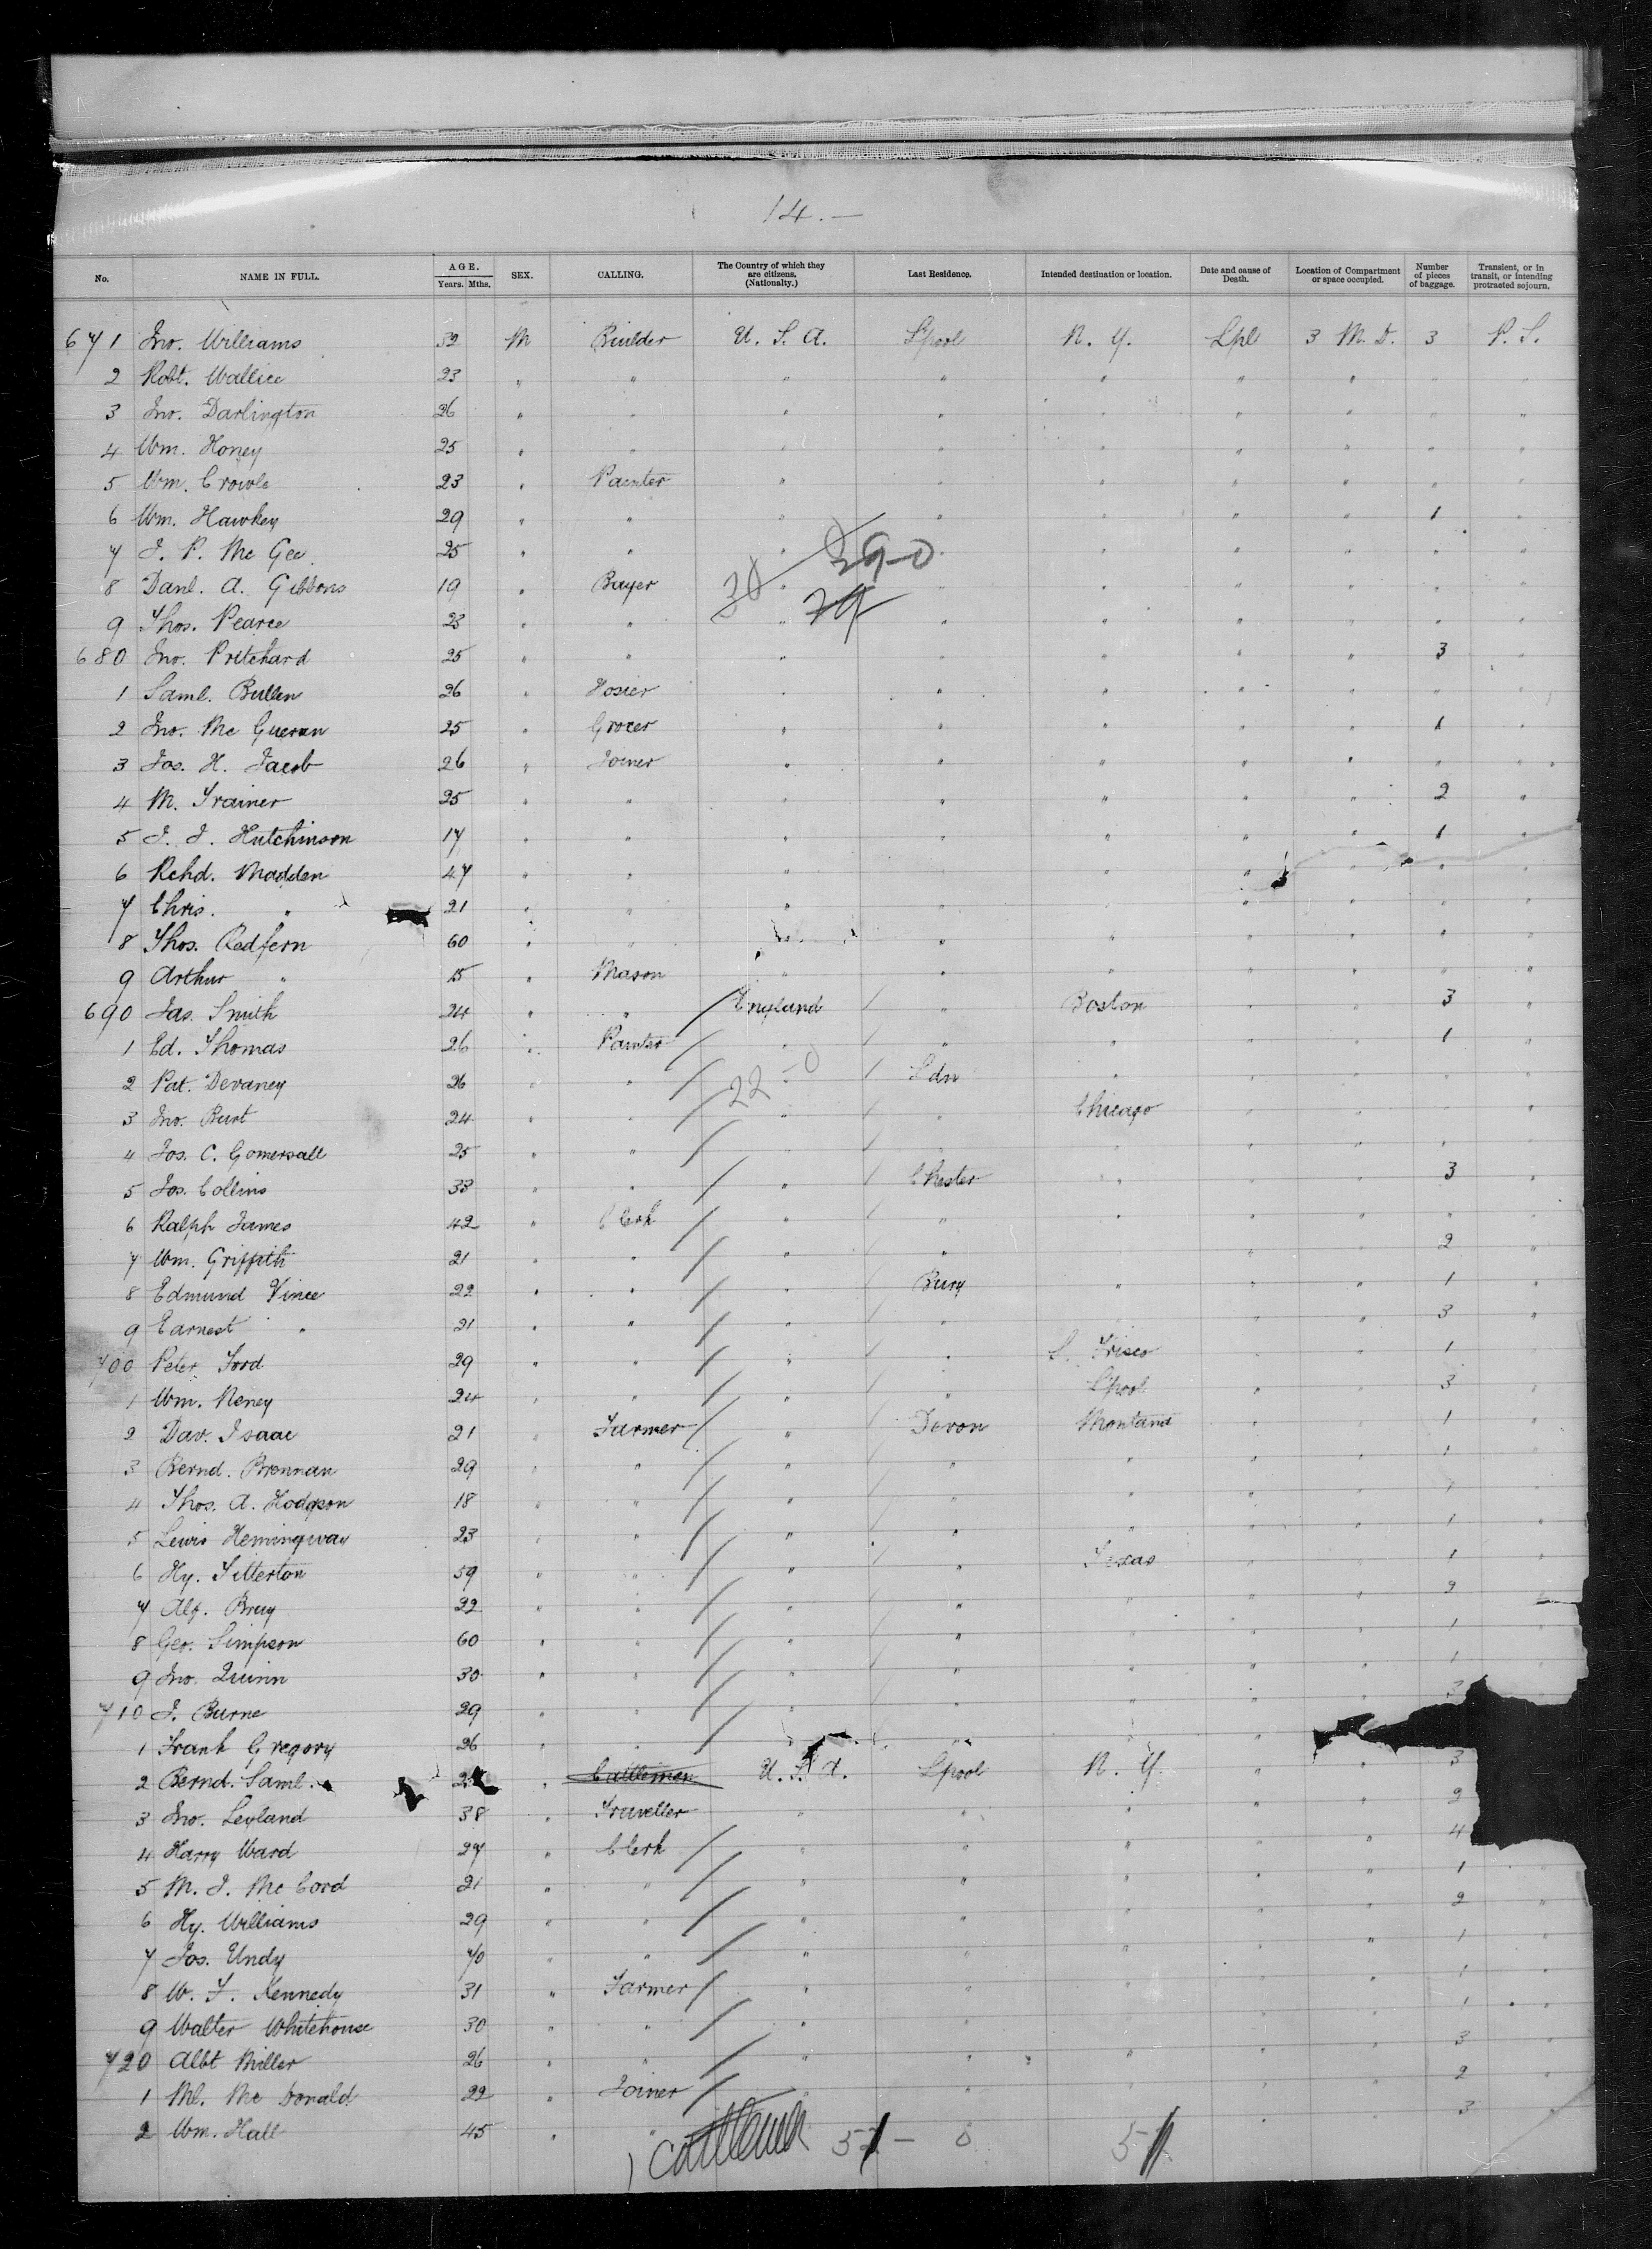 14.—
No. NAME IN FULL. AGE. Years. Mths. SEX. CALLING. The Country of which they are citizens. (Nationalty.) Last Residence. Intended destination or location. Date and cause of Death. Location of Compartment or space occupied. Number of pieces of baggage. Transient, or in transit, or intending protracted sojourn.
671 Jno. Williams 32 M Builder U. S. A. Lpool N. Y. Lpl 3 M. D. 3 P. S.
2 Robt. Wallice 23 " " " " " " " " "
3 Jno. Darlington 26 " " " " " " " " "
4 Wm. Honey 25 " " " " " " " " "
5 Wm. Crowle 23 " Painter " " " " " " "
6 Wm. Hawkey 29 " " " " " " " 1 "
7 J. P. Mc Gee 25 " " " " " " " " "
390
8 Danl. A. Gibbons 19 " Buyer " " " " " " "
30 79
9 Thos. Pearce 23 " " " " " " " " "
680 Jno. Pritchard 25 " " " " " " " 3 "
1 Saml. Bullen 26 " Hosier " " " " " " "
2 Jno. Mc Gueran 25 " Grocer " " " " " 1 "
3 Jos. H. Jacob 26 " Joiner " " " " " " "
4 M. Trainer 25 " " " " " " " 2 "
5 J. J. Hutchinson 17 " " " " " " " 1 "
6 Rchd. Madden 47 " " " " " " " " "
7 Chris. " 21 " " " " " " " " "
8 Thos. Redfern 60 " " " " " " " "
9 Arthur " 15 " Mason " " " " " " "
690 Jas. Smith 24 " " England " Boston " " 3 "
1 Ed. Thomas 26 " Painter " " " " " 1 "
2 Pat. Devaney 26 " " " Ldn " " " " "
22 - 0
3 Jno. Burt 24 " " " " Chicago " " " "
4 Jos. C. Gomersall 25 " " " " " " " " "
5 Jos. Collins 33 " " " Chester " " " 3 "
6 Ralph James 42 " Clerk " " " " " " "
7 Wm. Griffith 21 " " " " " " " 2 "
8 Edmund Vince 22 " " " Bury " " " 1 "
9 Earnest " 21 " " " " " " " 3 "
700 Peter Ford 29 " " " " S. Frisco " " 1 "
1 Wm. Neney 24 " " " " Lpool " " 3 "
2 Dav. Isaac 21 " Farmer " Devon Montana " " 1 "
3 Bernd. Brennan 29 " " " " " " " 1 "
4 Thos. A. Hodgson 18 " " " " " " " "
5 Lewis Hemingway 23 " " " " " " " 1 "
6 Hy. Titterton 59 " " " " Texas " " 1 "
7 Alf. Bray 22 " " " " " " " 2
8 Geo. Simpson 60 " " " " " " " 1
9 Jno. Quinn 30 " " " " " " " 1
710 J. Burne 29 " " " " " " " 3
1 Frank Gregory 26 " " " " " "
2 Bernd. Saml. " Cattleman U. S. A. Lpool N. Y. " " 3
3 Jno. Leyland 38 " Traveller " " " " " 2
4 Harry Ward 27 " Clerk " " " " " 4
5 M. J. Mc Cord 21 " " " " " " " 1 "
6 Hy. Williams 29 " " " " " " " 2 "
7 Jos. Undy 40 " " " " " " " 1 "
8 W. F. Kennedy 31 " Farmer " " " " " 1 "
9 Walter Whitehouse 30 " " " " " " " 1 "
720 Albt Miller 26 " " " " " " " 3 "
1 Ml. Mc Donald 22 " Joiner " " " " " 2 "
2 Wm. Hall 45 " " " " " " " 3 "
1 Cattleman